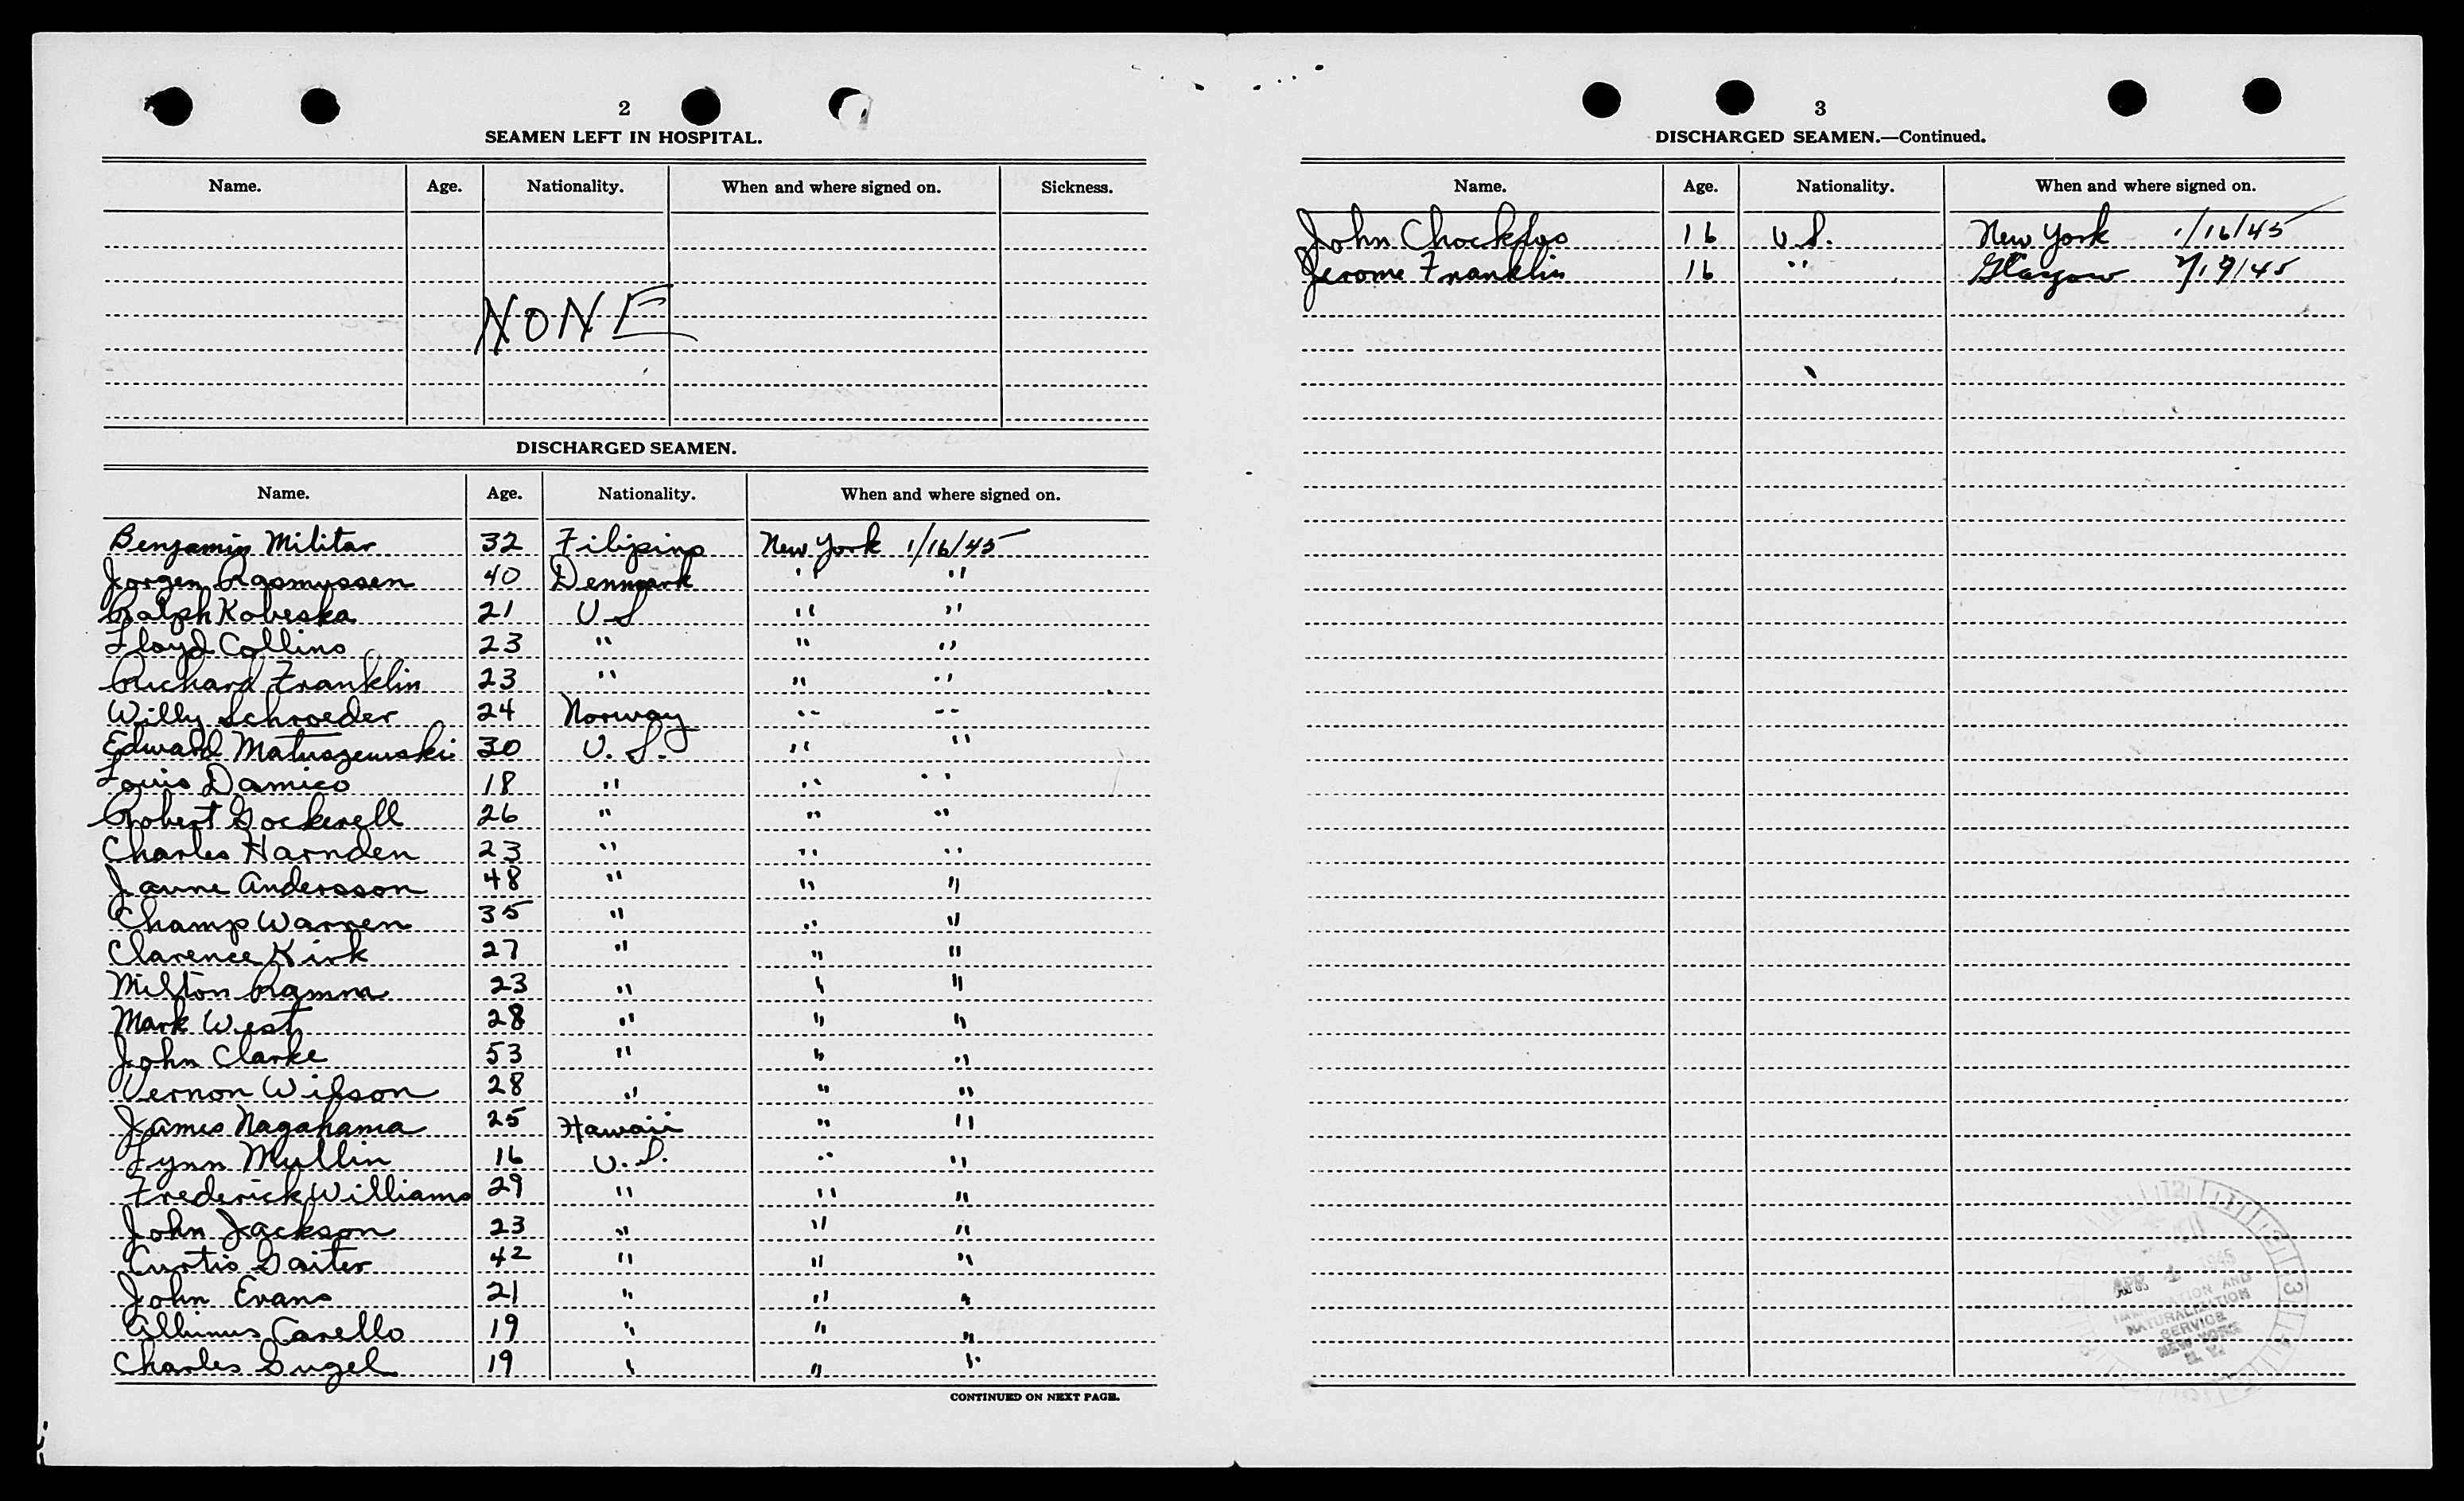 2
SEAMEN LEFT IN HOSPITAL.
Name. Age. Nationality. When and where signed on. Sickness.
NONE
DISCHARGED SEAMEN.
Name. Age. Nationality. When and where signed on.
Benjamin Militar 32 Filipino New York 1/16/45
Jorgen Rasmussen 40 Denmark " "
Ralph Kobeska 21 U S " "
Floyd Collins 23 " " "
Richard Franklin 23 " " "
Willy Schroeder 24 Norway " "
Edward Matuszewski 30 U. S. " "
Louis Damico 18 " " "
Robert Gockerell 26 " " "
Charles Harnden 23 " " "
Janne Andersson 48 " " "
Champ Warren 35 " " "
Clarence Kirk 27 " " "
Milton Ramm 23 " " "
Mark West 28 " " "
John Clarke 53 " " "
Vernon Wilson 28 " " "
James Nagahama 25 Hawaii " "
Lynn Mullin 16 U. S. " "
Frederick Williams 29 " " "
John Jackson 23 " " "
Curtis Gaiter 42 " " "
John Evans 21 " " "
Carello 19 " " "
Charles Gugel 19 " " "
CONTINUED ON NEXT PAGE.
3
DISCHARGED SEAMEN.—Continued.
Name. Age. Nationality. When and where signed on.
John 16 U S. New York 1/16/45
Jerome Franklin 16 " Glasgow /45
APR 4 1945
IMMIGRATION AND
NATURALIZATION
SERVICE
NEW YORK
N. Y.